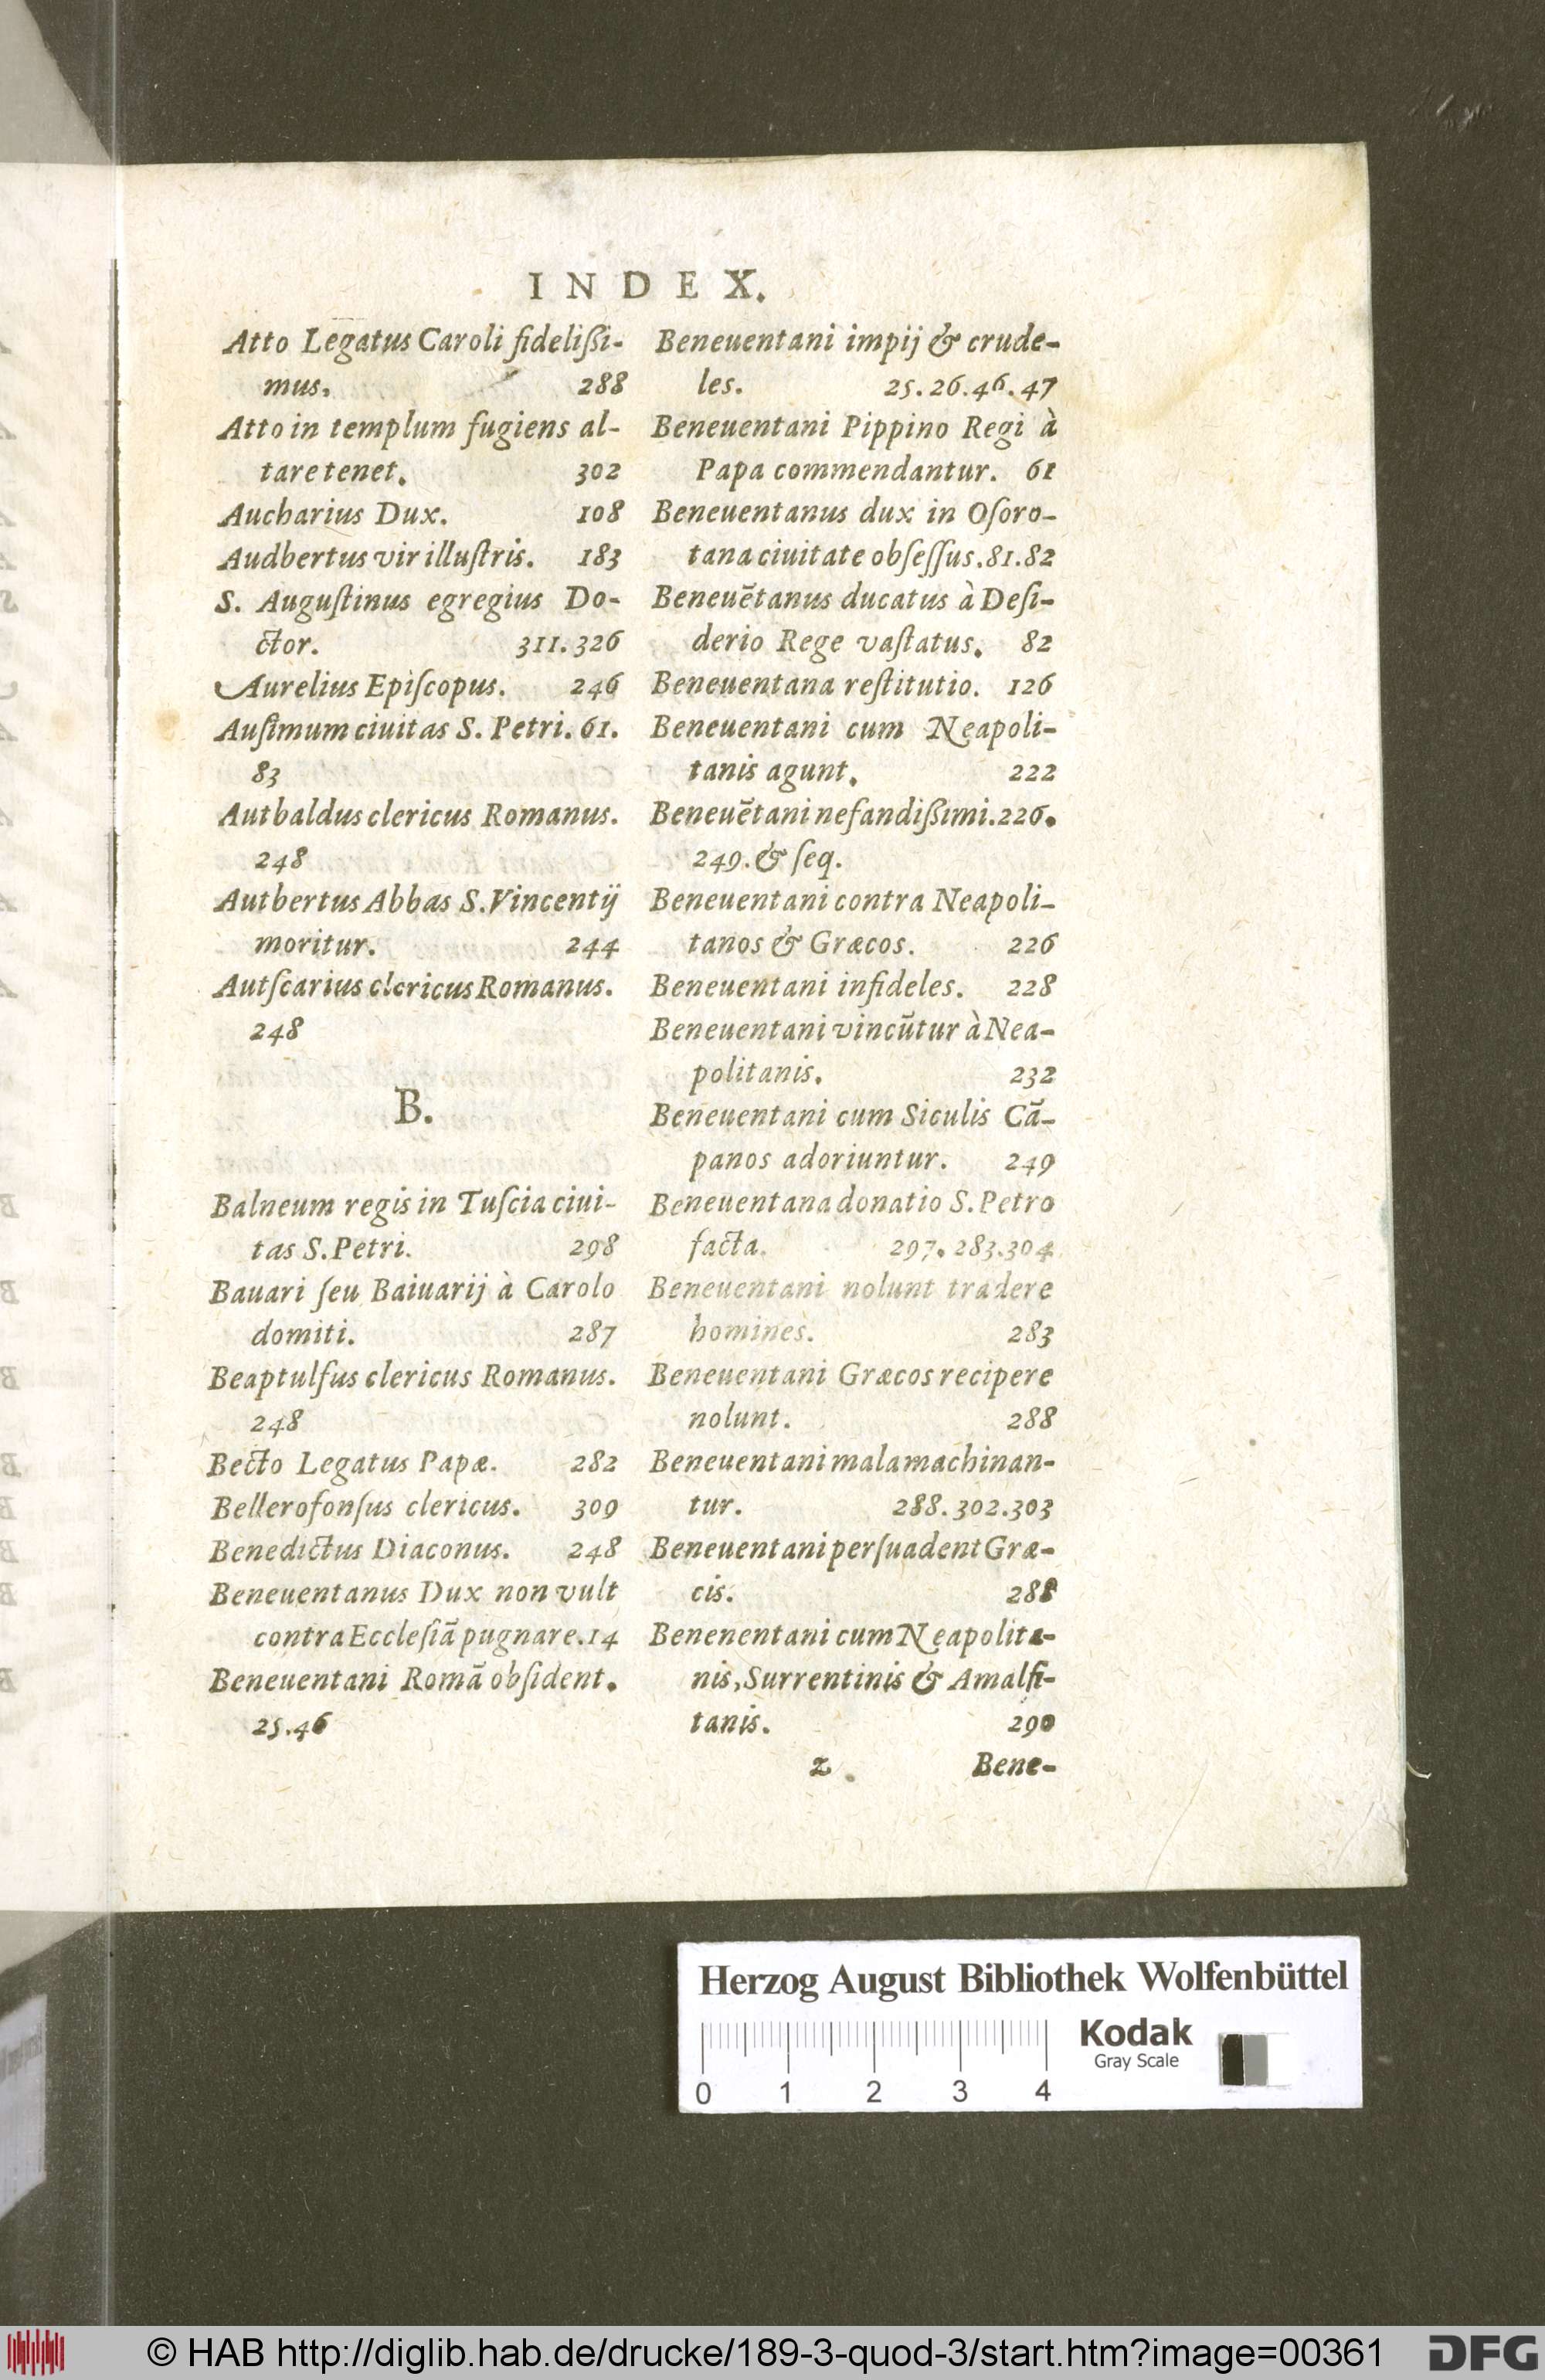 INDEX.
Atto Legatus Caroli fidelißi-
mus. 288
Atto in templum fugiens al-
tare tenet. 302
Aucharius Dux. 108
Audbertus vir illuſtris. 183
S. Auguſtinus egregius Do-
ctor. 311.326
Aurelius Epiſcopus. 246
Auſimum ciuitas S. Petri. 61.
83
Autbaldus clericus Romanus.
248
Autbertus Abbas S. Vincentij
moritur. 244
Autſcarius clericus Romanus.
248
B.
Balneum regis in Tuſcia ciui-
tas S. Petri. 298
Bauari ſeu Baiuarij à Carolo
domiti. 287
Beaptulfus clericus Romanus.
248
Becto Legatus Papæ. 282
Bellerofonſus clericus. 309
Benedictus Diaconus. 248
Beneuentanus Dux non vult
contra Eccleſiã pugnare. 14
Beneuentani Romã obſident.
25.46
Beneuentani impij & crude-
les. 25.26.46.47
Beneuentani Pippino Regi à
Papa commendantur. 61
Beneuentanus dux in Oſoro-
tana ciuitate obſeſſus. 81.82
Beneuẽtanus ducatus à Deſi-
derio Rege vaſtatus. 82
Beneuentana reſtitutio. 126
Beneuentani cum Neapoli-
tanis agunt. 222
Beneuẽtani nefandißimi. 226.
249. & ſeq.
Beneuentani contra Neapoli-
tanos & Græcos. 226
Beneuentani infideles. 228
Beneuentani vincũtur à Nea-
politanis. 232
Beneuentani cum Siculis Cã-
panos adoriuntur. 249
Beneuentana donatio S. Petro
facta. 297.283.304
Beneuentani nolunt tradere
homines. 283
Beneuentani Græcos recipere
nolunt. 288
Beneuentani mala machinan-
tur. 288.302.303
Beneuentani perſuadent Græ-
cis. 288
Benenentani cum Neapolita-
nis, Surrentinis & Amalfi-
tanis. 290
z Bene-
Herzog August Bibliothek Wolfenbüttel
Kodak
Gray Scale
0 1 2 3 4
© HAB http://diglib.hab.de/drucke/189-3-quod-3/start.htm?image=00361
DFG